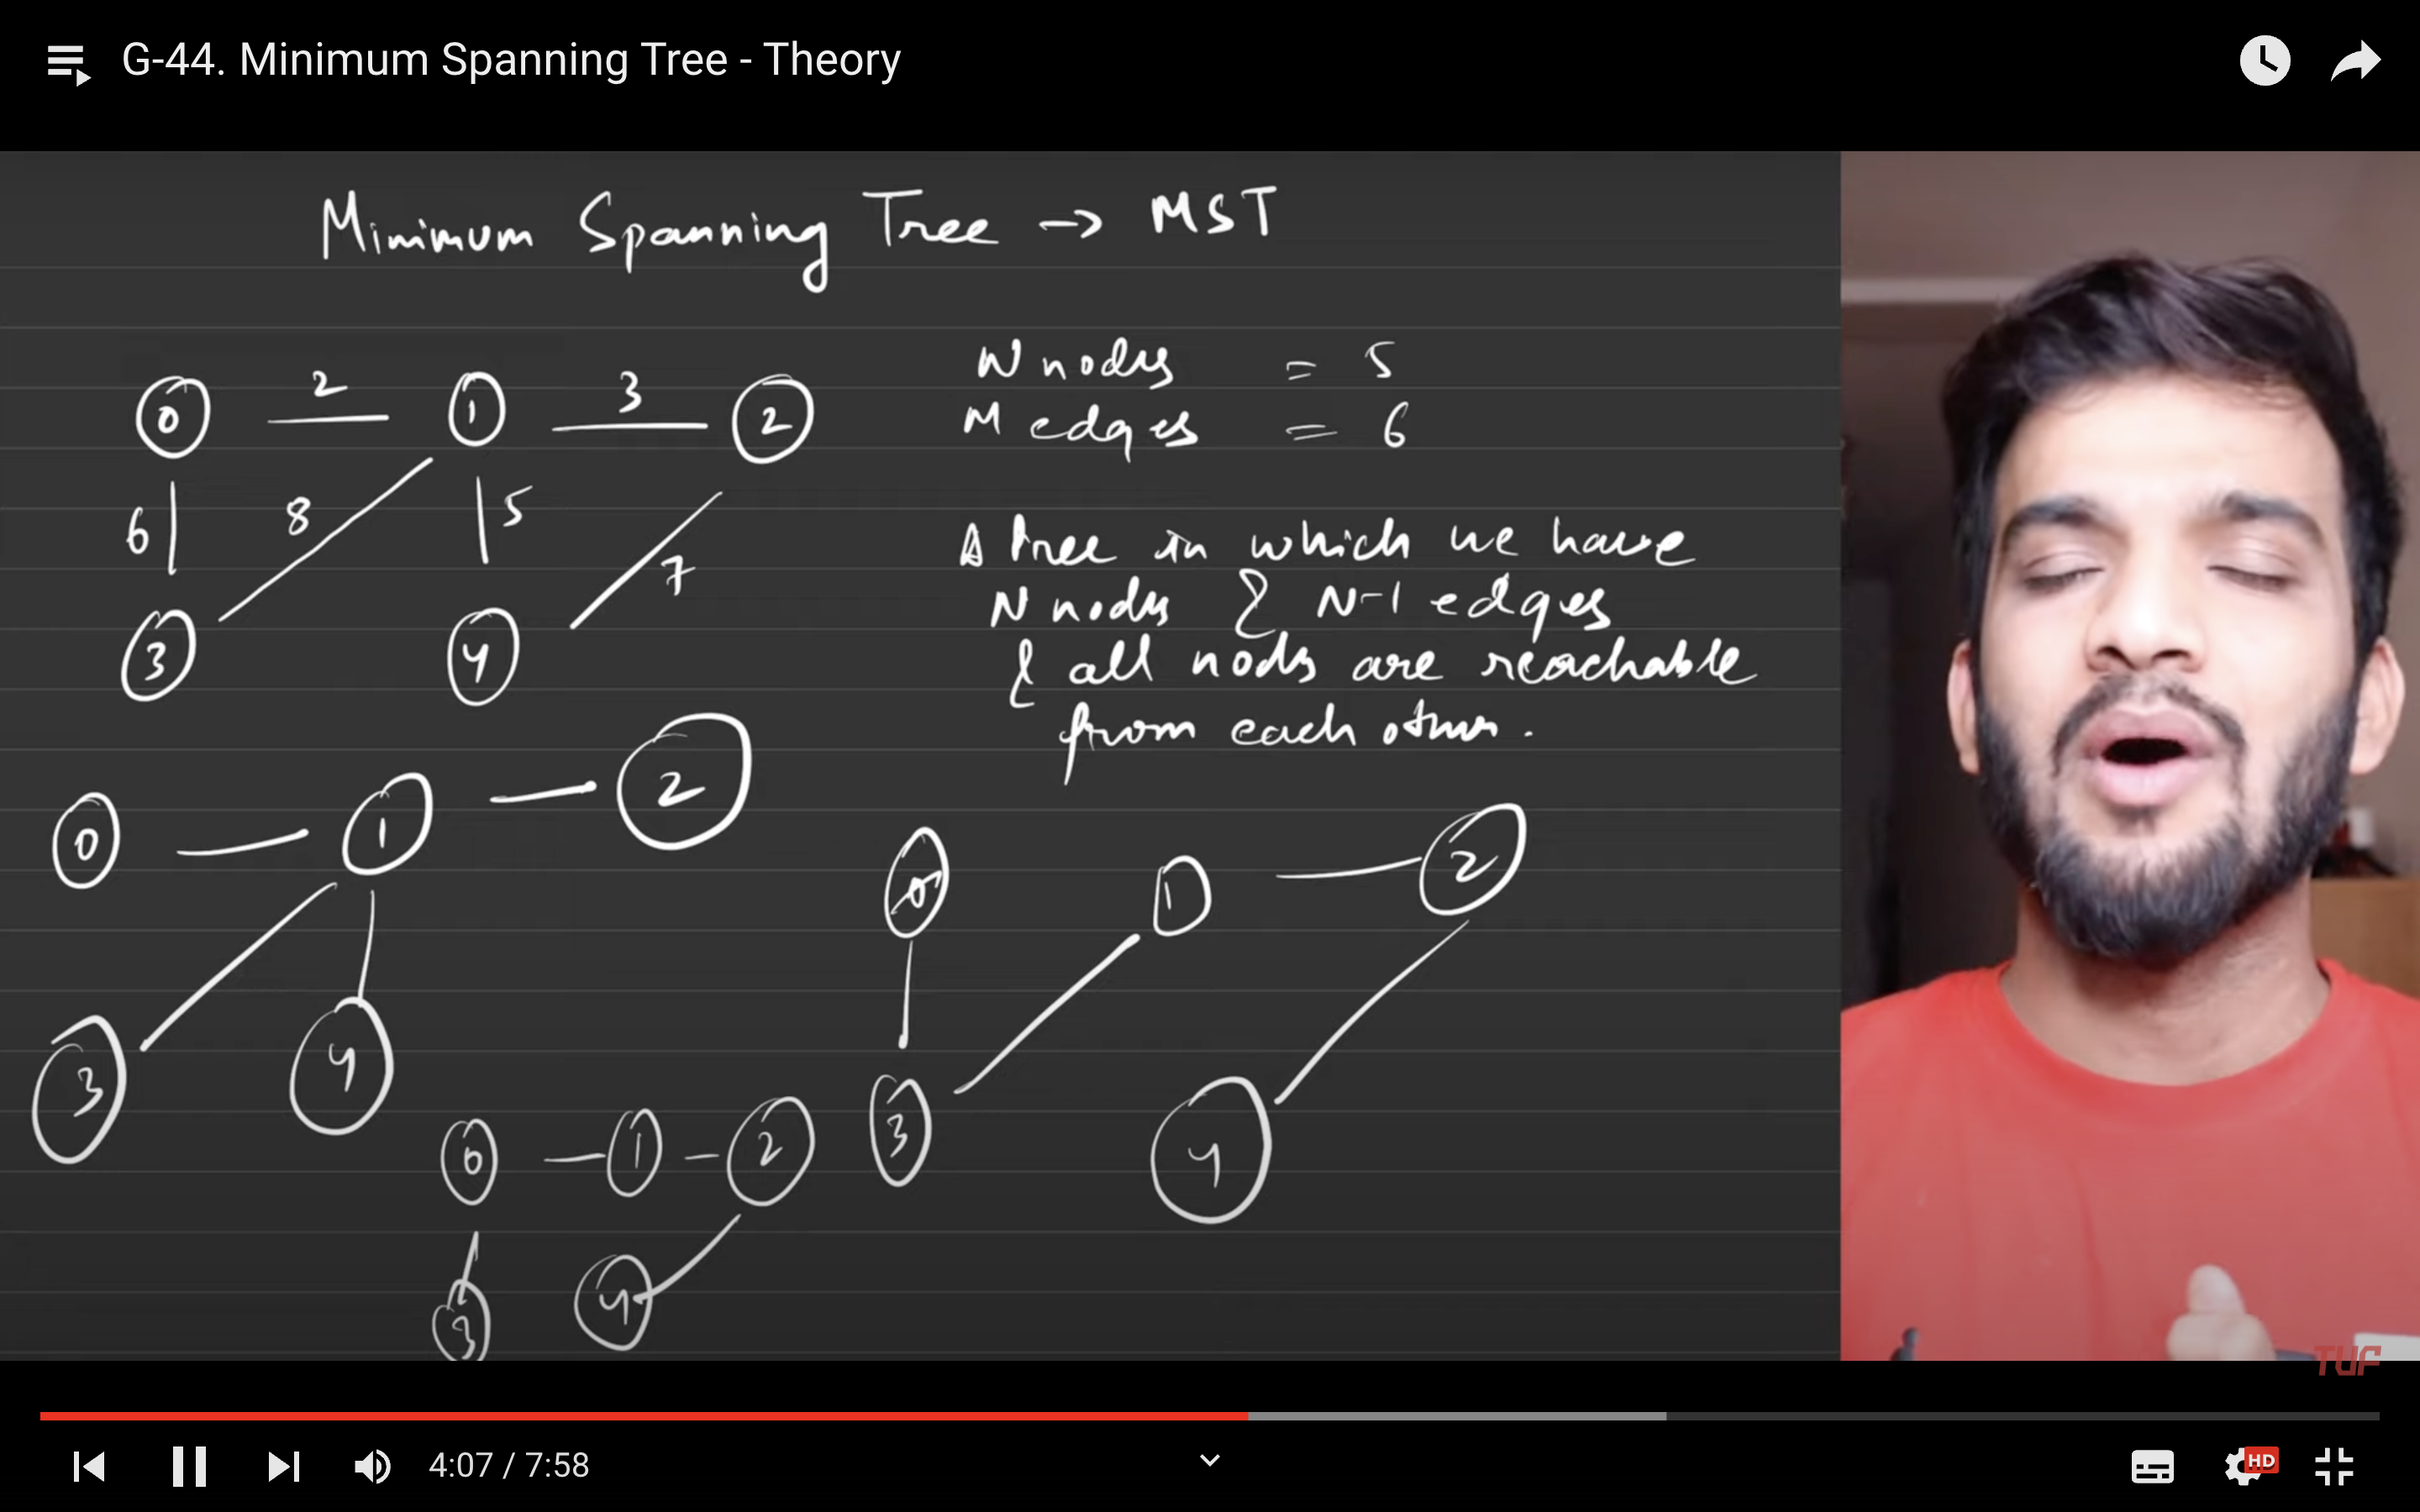 G-44. Minimum Spanning Tree - Theory
Minimum Spanning Tree -> MST
N nodes = 5
M edges = 6
0 2 1 3 2
6 8 5 7
3 4
A tree in which we have
N nodes & N-1 edges
& all nodes are reachable
from each other.
0 1 2
3 4
0 1 2
3 4
0 1 2
3 4
TUF
4:07 / 7:58
HD